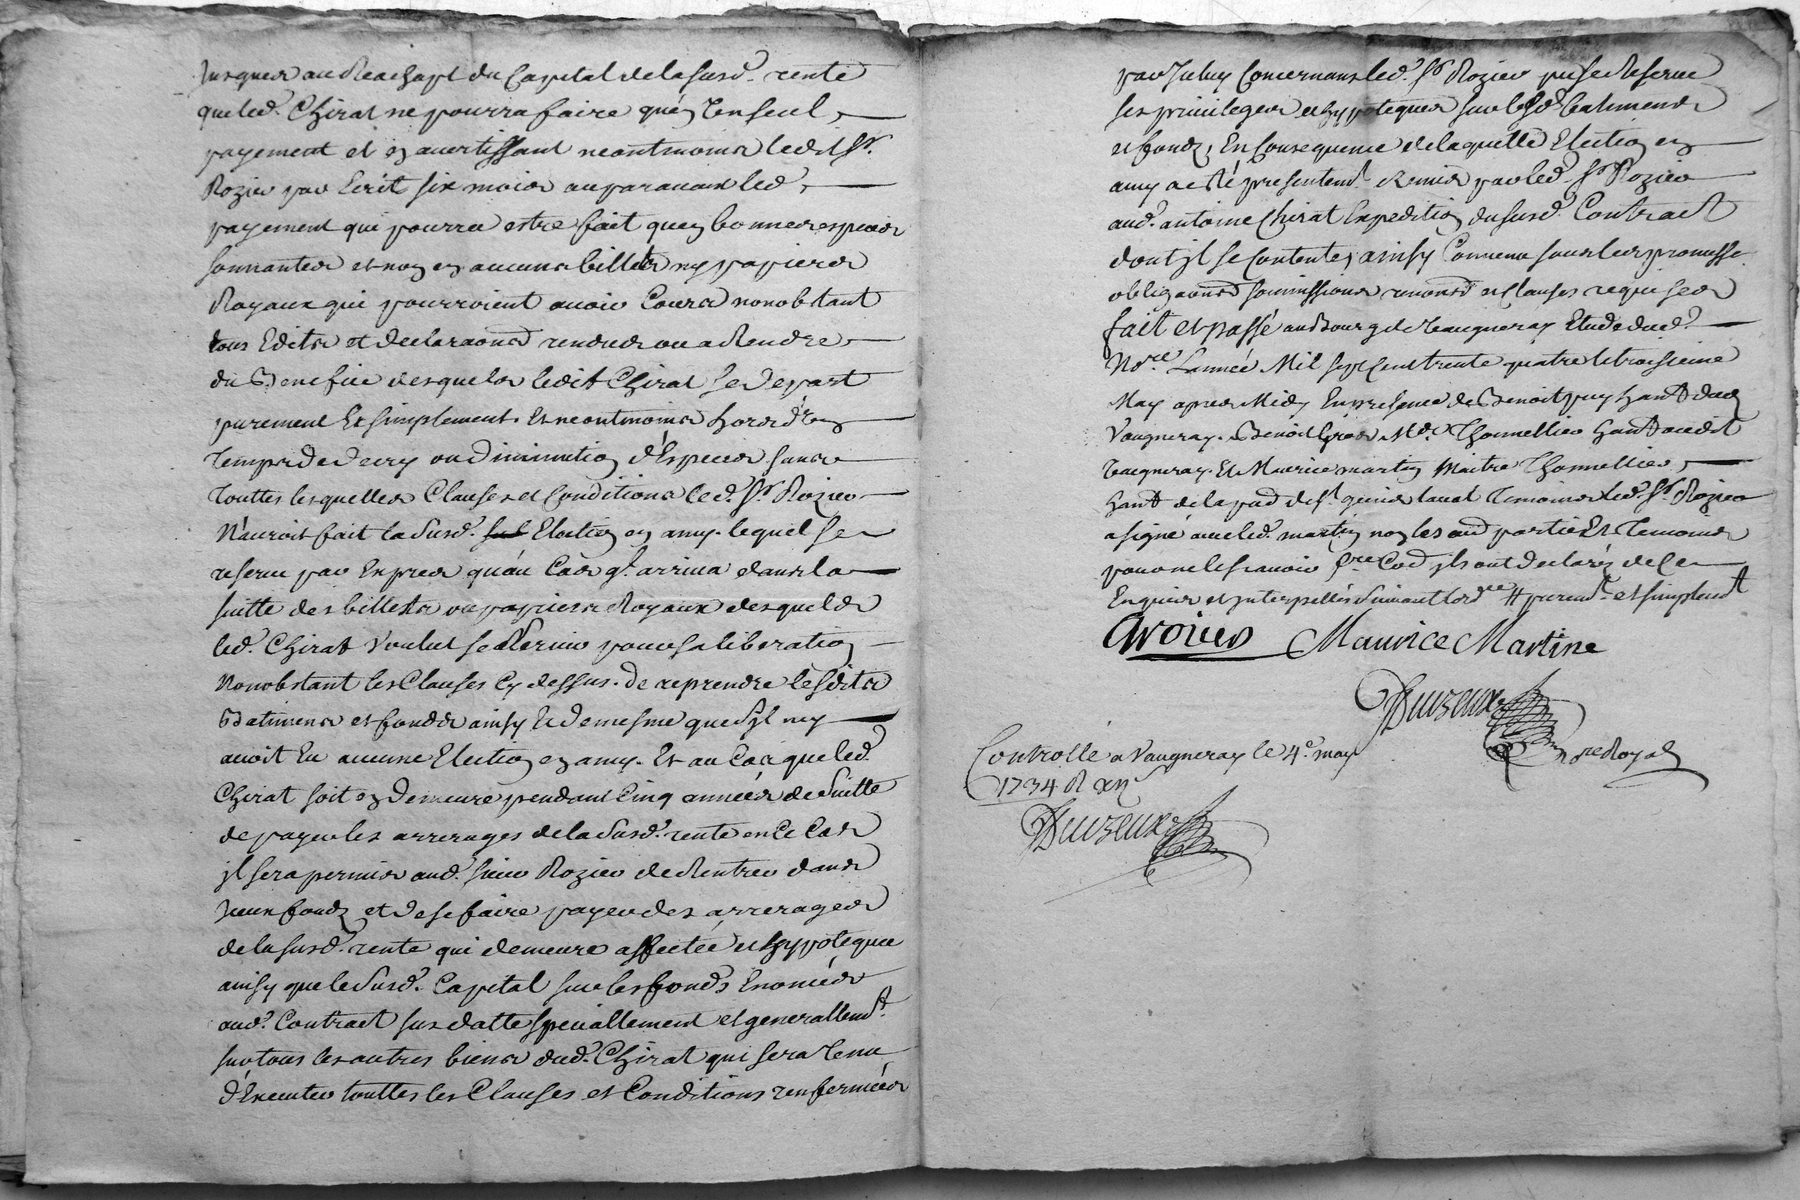 Jusques au Reachapt du Capital de la susd.^e rente
que led.^t Chirat ne pourra faire qu'en un seul
payement et en avertissant neantmoins ledit S^r.
Rozier par Ecrit six mois auparavant led.^t
payement qui pourra estre fait qu'en bonnes especes
sonnantes et non en aucuns billets ny papiers
Royaux qui pourroient avoir Cours nonobstant
tous Edits et declaraons rendues ou a Rendre
du Benefice desquels ledit Chirat se depart
purement Et simplement. Et neantmoins hors d'un
temps de decry ou diminution d'Especes sans
touttes lesquelles Clauses et Conditions led.^t S^r Rozier
N'auroit fait la susd.^e Election en amy. lequel se
reserve par Expres qu'au Cas q.^l arriva dans la
suitte des billets ou papiers Royaux desquels
led.^t Chirat voulut se servir pour sa liberation
Nonobstant les Clauses Cy dessus. de reprendre lesdits
Batimens et fonds ainsy Et de mesme que s'jl n'y
avoit Eu aucune Election en amy. Et au Cas que led.^t
Chirat soit en Demeure pendant Cinq années de suitte
de payer les arrerages de la susd.^e rente en Ce Cas
jl sera permis aud.^t sieur Rozier de Rentrer dans
Jceux fonds et de se faire payer des arrerages
de la susd.^e rente qui demeure affectée et hypotequee
ainsy que le susd.^t Capital sur les fonds Enoncés
aud.^t Contract sus datte speciallement et generallem^t.
sur tous les autres biens dud.^t Chirat qui sera tenu
d'Executer touttes les Clauses et Conditions renfermées
par Jceluy Concernant led.^t S^r Rozier qui se Reserve
ses privileges et hypoteques sur lesd.^s batimens
et fonds, En Consequence de laquelle Election en
amy a eté presentem^t. Remis par led.^t S^r Rozier
aud.^t antoine Chirat Expedition du susd.^t Contract
dont jl se Contente, ainsy Convenu sous leurs promesse
obligaons soumissions renons et Clauses requises
fait et passé au Bourg de Vaugneray Etude dud.^t
No^re. L'année Mil sept Cent trente quatre le troisieme
May apres Midy En presence de Benoit puy hant dud
Vaugneray. Benoit Gros M.^e Thonnellier hant audit
Vaugneray. Et Maurice martin Maitre Thonnellier
hant de la pad de S^t genis laval Temoins led.^t S^r Rozier
a signé avec led.^t martin non les aud partie Et Temoins
pour ne le scavoir jls ont declarés de Ce
Enquis et Interpellés suivant lord^ce # purem^t et simplem^t
Groziers Maurice Martine
Duizeux
n^re Royal
Controllé a Vaugneray le 4.^e may
1734 R
Duizeux